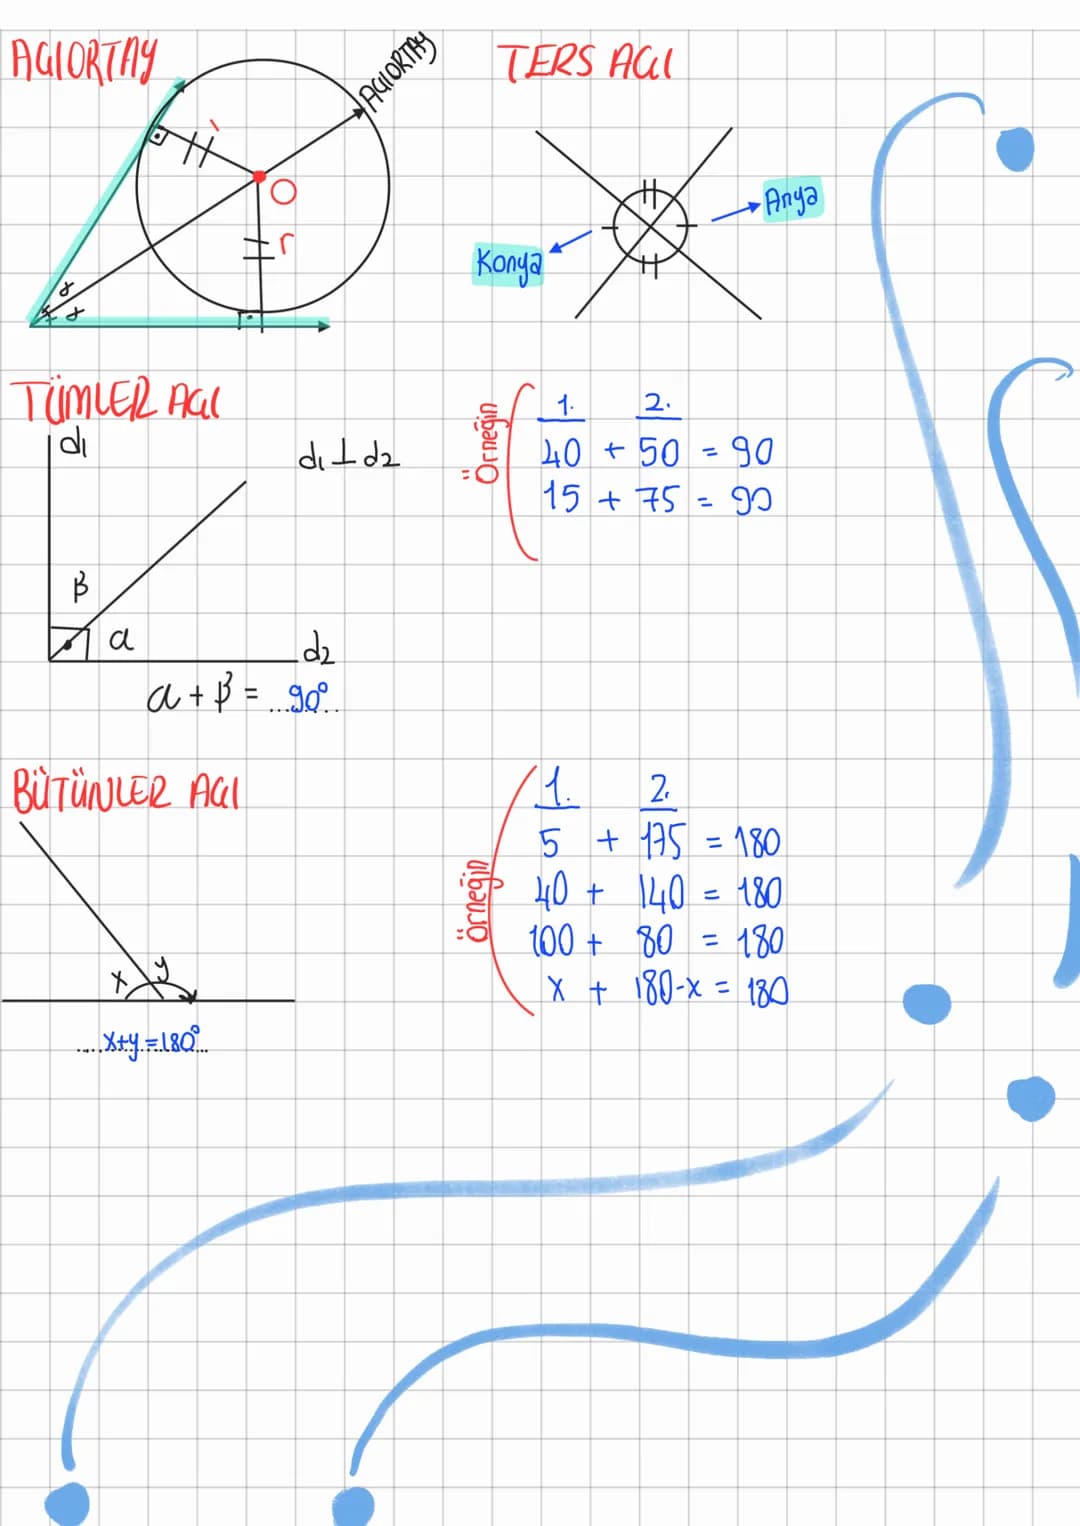 AÇIORTAY
AÇIORTAY
r
O
r
α
α
TERS AÇI
Anya
Konya
TÜMLER AÇI
d1
d1 ⊥ d2
β
α
d2
α + β = ...90°..
Örneğin
1. 2.
40 + 50 = 90
15 + 75 = 90
BÜTÜNLER AÇI
x y
....x+y=180°...
Örneğin
1. 2.
5 + 175 = 180
40 + 140 = 180
100 + 80 = 180
x + 180-x = 180